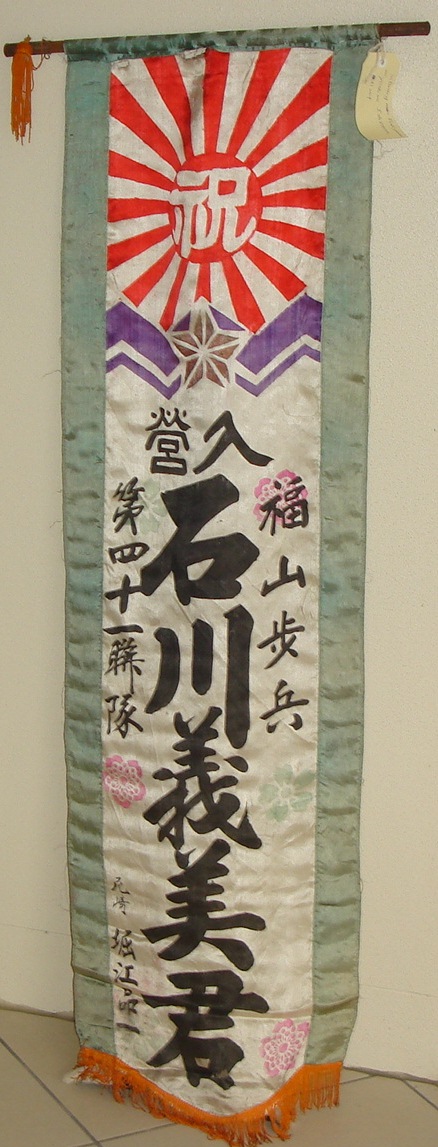 祝
入營
福山步兵
第四十一聯隊
石川義美君
尼崎 堀江品一